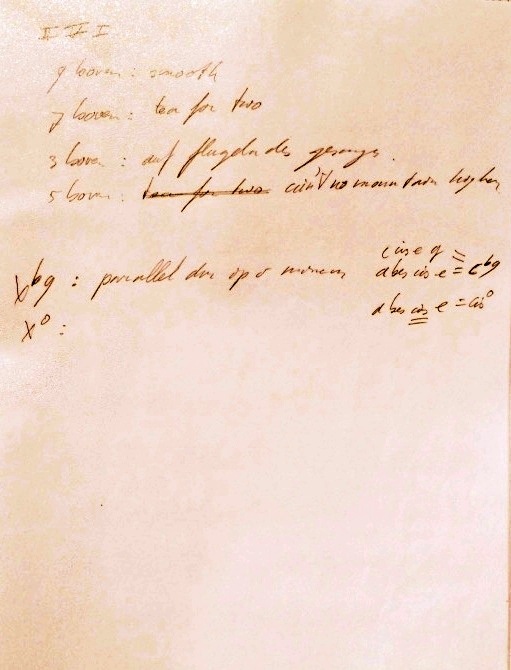 II V I
9 boven: smooth
7 boven: tea for two
3 boven: auf flugeln des gesanges
5 boven: tea for two ain't no mountain higher
cis e g =
X b9 : parallel dur op mineur a bes cis e = C b9
X° : a bes cis e = cis°